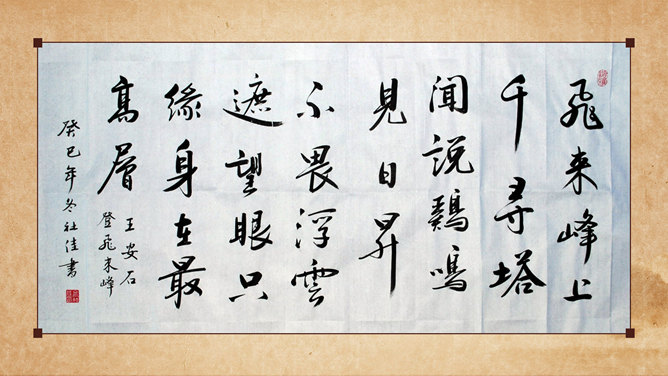 飛来峰上
千尋塔
聞說鷄鳴
見日昇
不畏浮雲
遮望眼只
緣身在最
高層
王安石
登飛来峰
癸巳年冬杜佳書